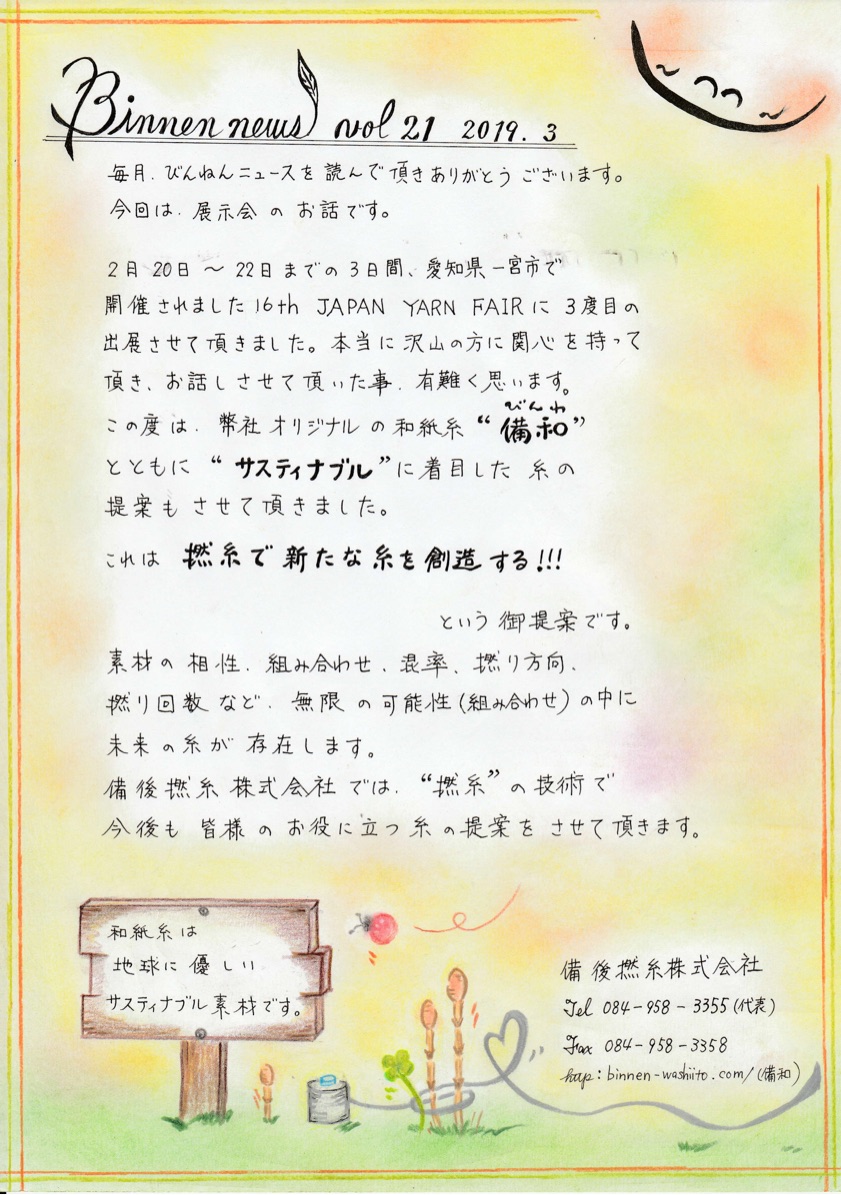 Binnen news vol 21 2019. 3
毎月、びんねんニュースを読んで頂きありがとうございます。
今回は、展示会のお話です。
2月20日～22日までの3日間、愛知県一宮市で
開催されました16th JAPAN YARN FAIRに3度目の
出展させて頂きました。本当に沢山の方に関心を持って
頂き、お話しさせて頂いた事、有難く思います。
びんわ
この度は、幣社オリジナルの和紙糸“備和”
とともに“サスティナブル”に着目した糸の
提案もさせて頂きました。
これは撚糸で新たな糸を創造する!!!
という御提案です。
素材の相性、組み合わせ、混率、撚り方向、
撚り回数など、無限の可能性(組み合わせ)の中に
未来の糸が存在します。
備後撚糸株式会社では、“撚糸”の技術で
今後も皆様のお役に立つ糸の提案をさせて頂きます。
和紙糸は
地球に優しい
サスティナブル素材です。
備後撚糸株式会社
Tel 084-958-3355(代表)
Fax 084-958-3358
hap:binnen-washiito.com/(備和)